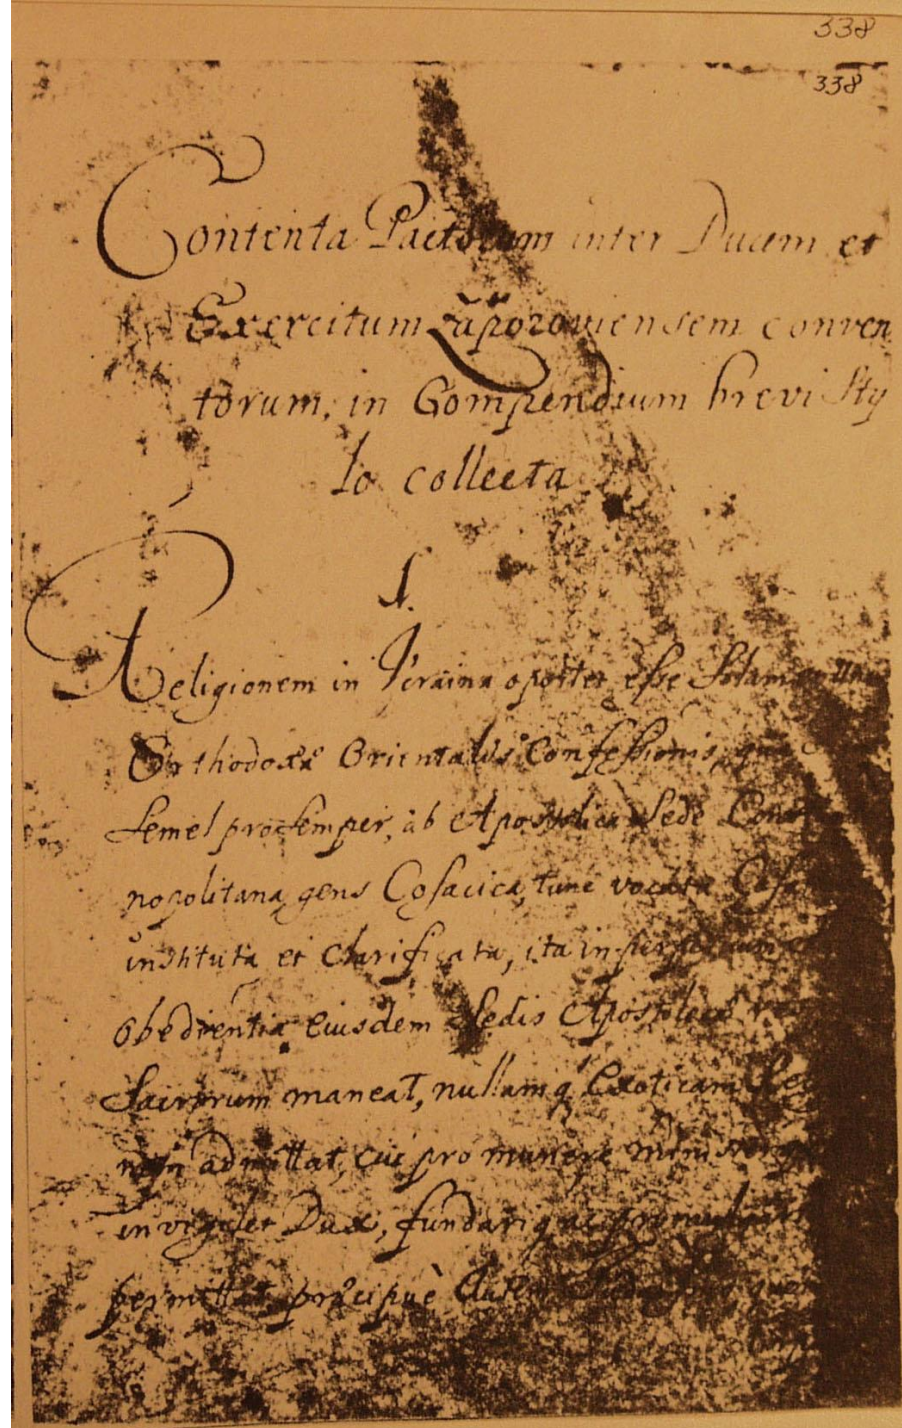 338
338
Contenta Pactorum inter Ducem et
Exercitum Zaporoviensem conven
torum, in Compendium brevi Sty
lo collecta
1.
Religionem in Ucraina oportet esse Solam
Orthodoxæ Orientalis Confessionis,
semel pro semper, ab Apostolica Sede
nopolitana gens Cosacica, tunc vocata
instituta et clarificata, ita in
Obedientia Eiusdem Sedis Apostolicæ
Sacrorum maneat, nullamq Exoticam
non admittat, cui pro munere
invigilet Dux, fundariq ac
permittat, præcipuè Autem